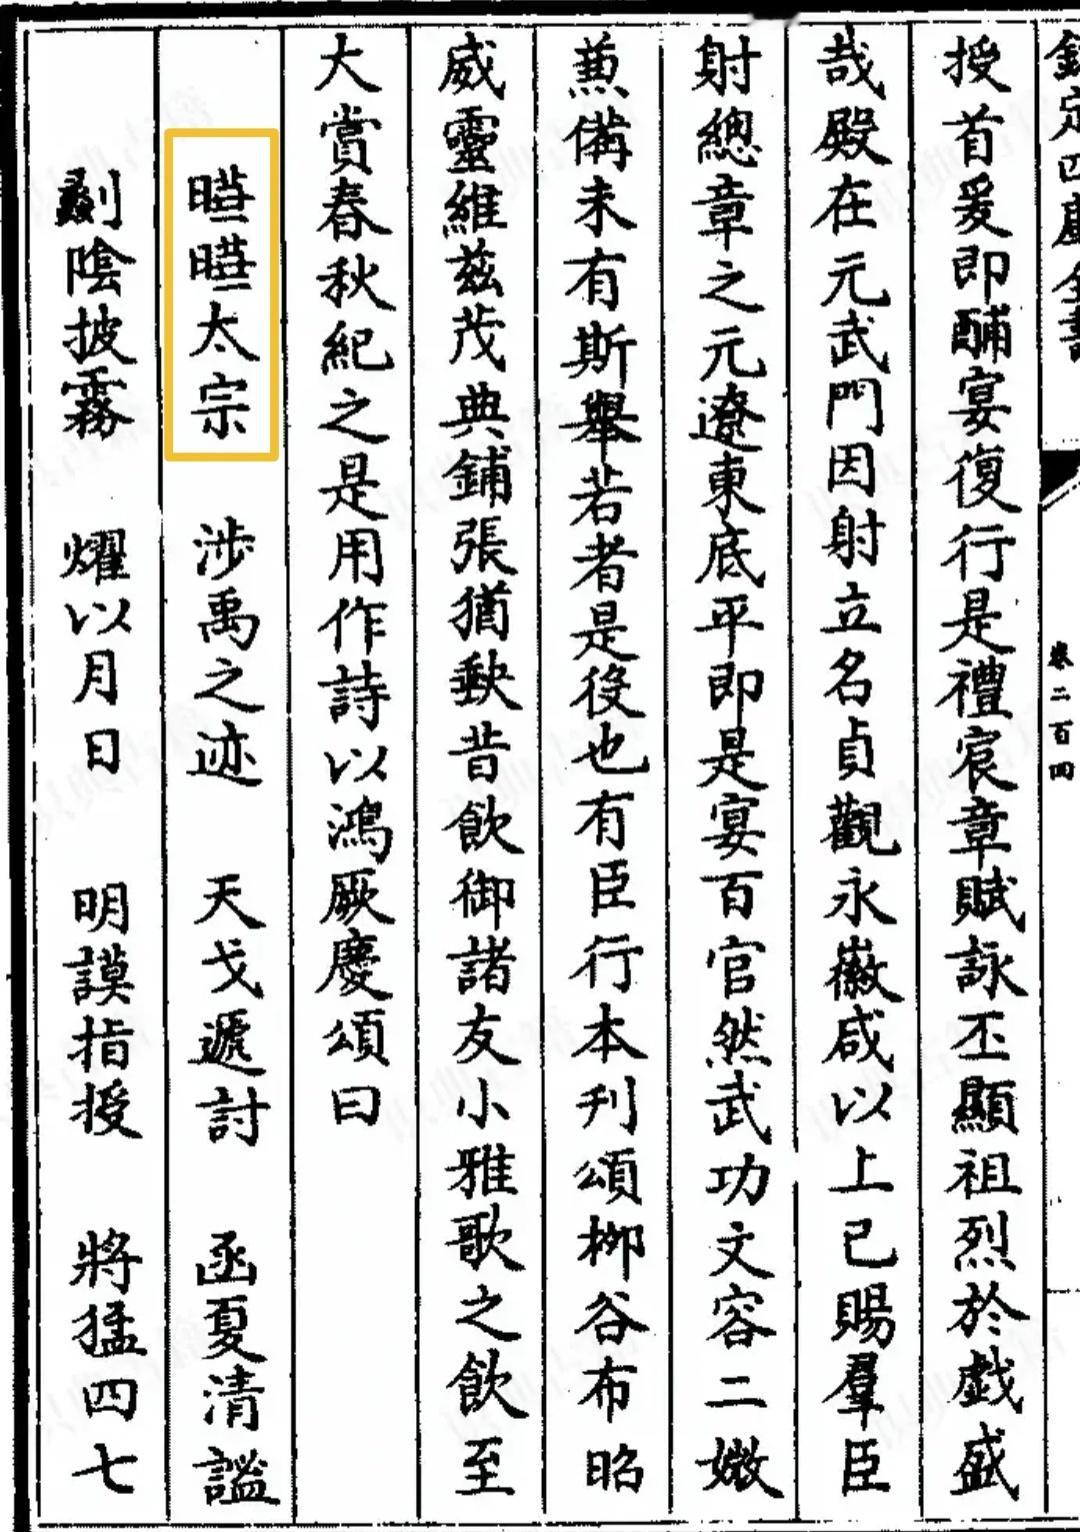 欽定四庫全書
卷二百四
授首爰即酺宴復行是禮宸章賦詠丕顯祖烈於戲盛
哉殿在元武門因射立名貞觀永徽咸以上已賜羣臣
射總章之元遼東底平即是宴百官然武功文容二媺
兼備未有斯舉若者是役也有臣行本刋頌柳谷布昭
威靈維兹茂典鋪張猶缺昔飲御諸友小雅歌之飲至
大賞春秋紀之是用作詩以鴻厥慶頌曰
曄曄太宗 涉禹之迹 天戈遞討 函夏清謐
隂披霧 燿以月日 明謨指授 將猛四七